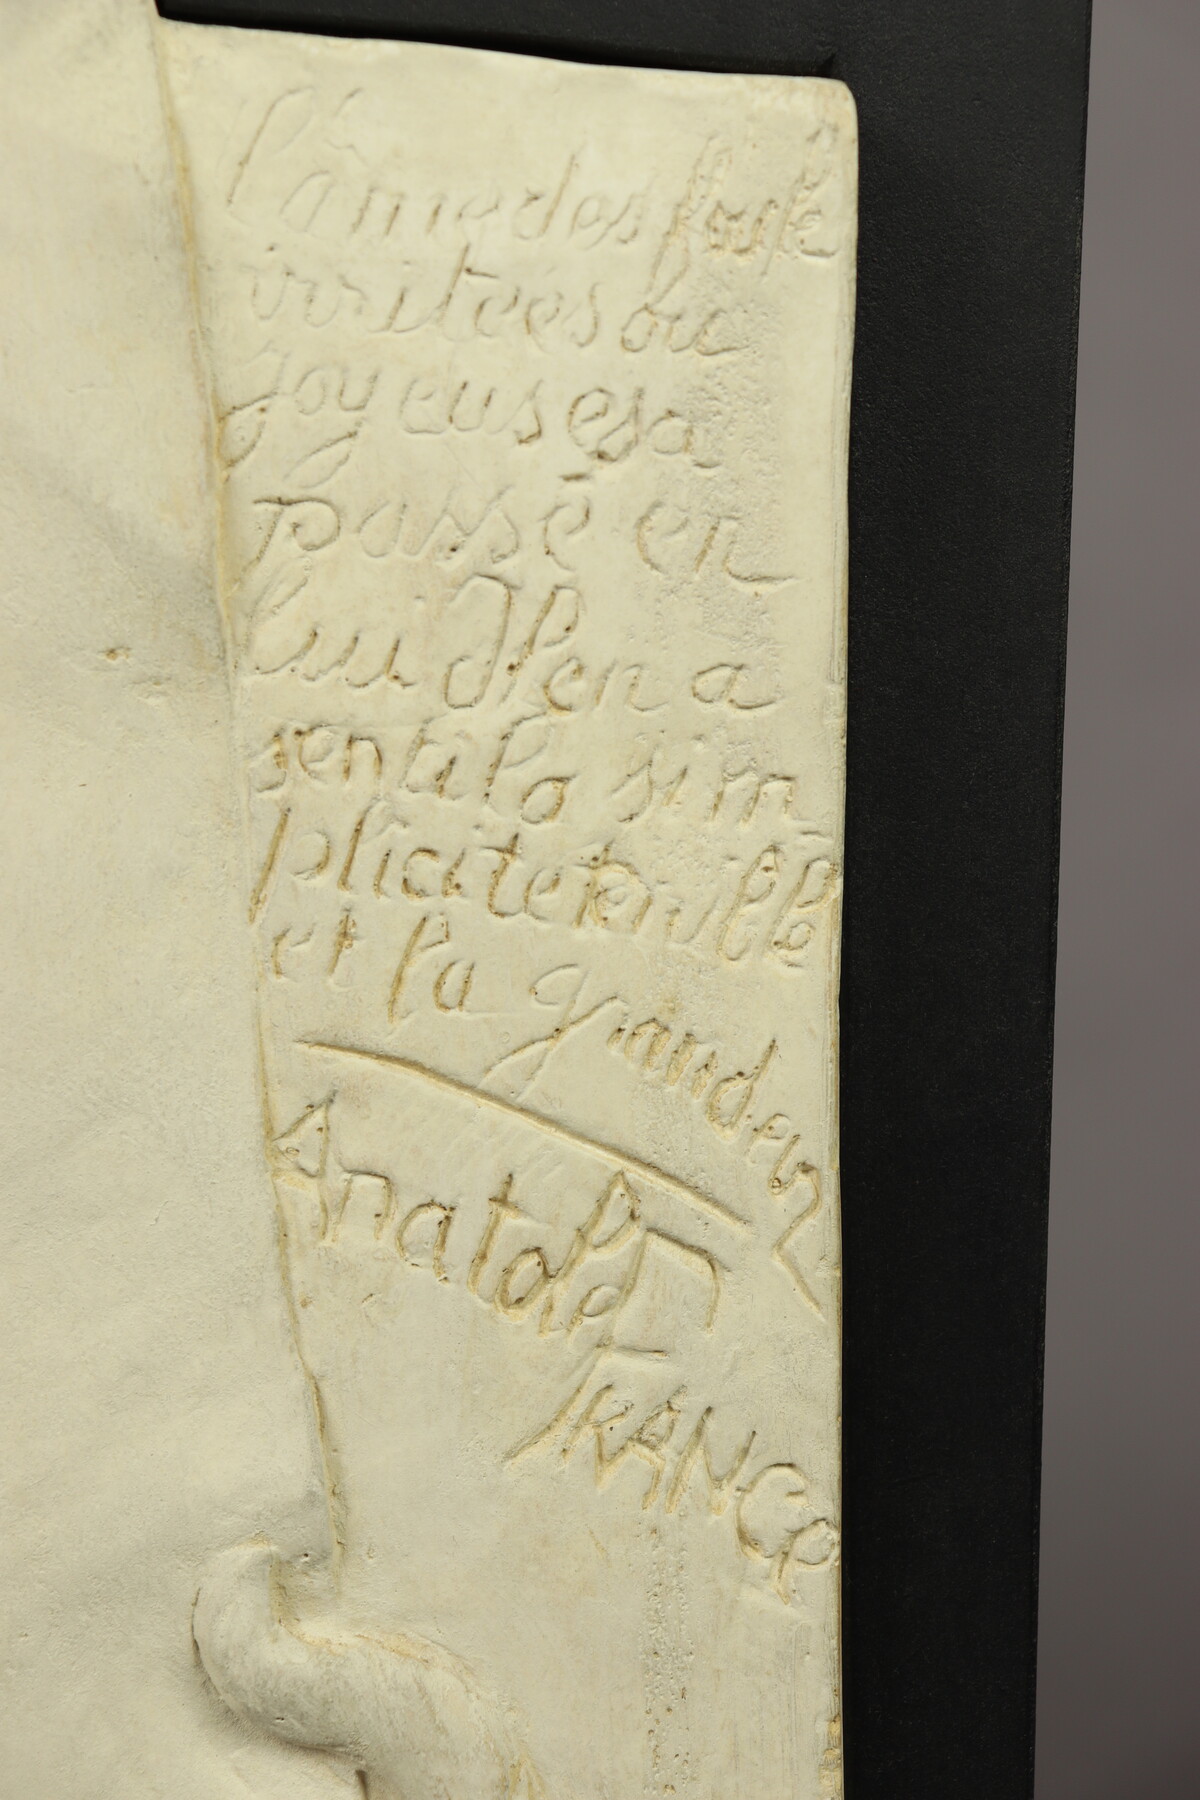 l'âme des foule
irritées ou
joyeuses a
passé en
lui Il en a
senti la sim
plicité terrible
et la grandeur
Anatole
FRANCE